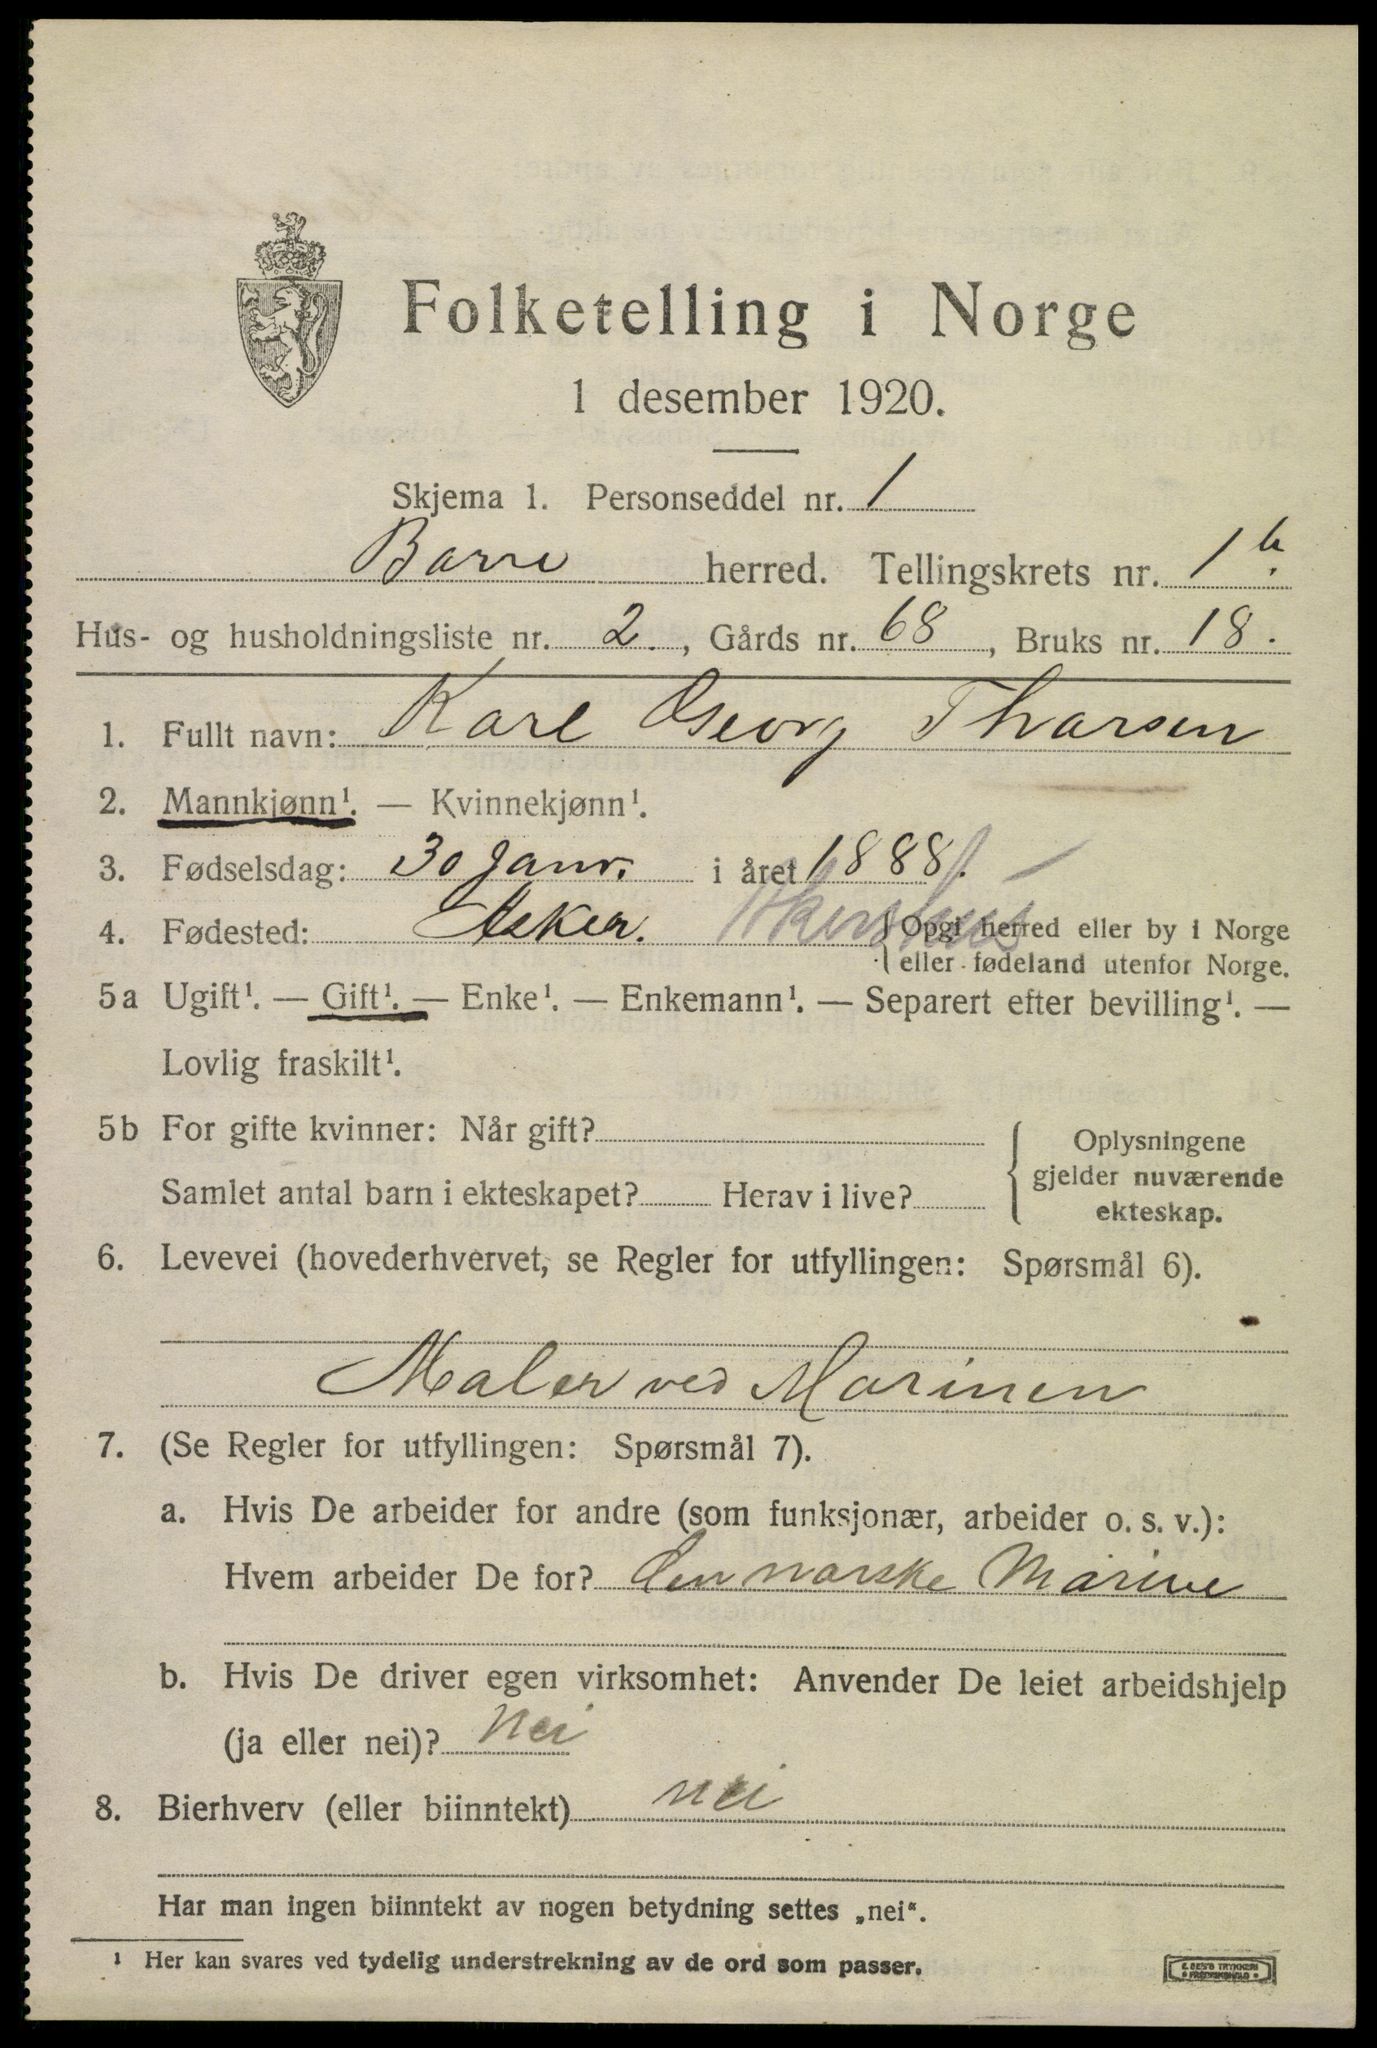 Folketelling i Norge
1 desember 1920.
Skjema 1. Personseddel nr. 1
Borre herred. Tellingskrets nr. 1 b.
Hus- og husholdningsliste nr. 2., Gårds nr. 68, Bruks nr. 18.
1. Fullt navn: Karl Georg Thorsen
2. Mannkjønn¹. — Kvinnekjønn¹.
3. Fødselsdag: 30 Janr. i året 1888.
4. Fødested: Asker. Akershus {Opgi herred eller by i Norge
eller fødeland utenfor Norge.
5a Ugift¹. — Gift¹. — Enke¹. — Enkemann¹. — Separert efter bevilling¹. —
Lovlig fraskilt¹.
5b For gifte kvinner: Når gift?
Samlet antal barn i ekteskapet? Herav i live?
{ Oplysningene
gjelder nuværende
ekteskap.
6. Levevei (hovederhvervet, se Regler for utfyllingen: Spørsmål 6).
Maler ved Marinen
7. (Se Regler for utfyllingen: Spørsmål 7).
a. Hvis De arbeider for andre (som funksjonær, arbeider o. s. v.):
Hvem arbeider De for? den norske Marine
b. Hvis De driver egen virksomhet: Anvender De leiet arbeidshjelp
(ja eller nei)? Nei
8. Bierhverv (eller biinntekt) nei
Har man ingen biinntekt av nogen betydning settes „nei“.
¹ Her kan svares ved tydelig understrekning av de ord som passer.